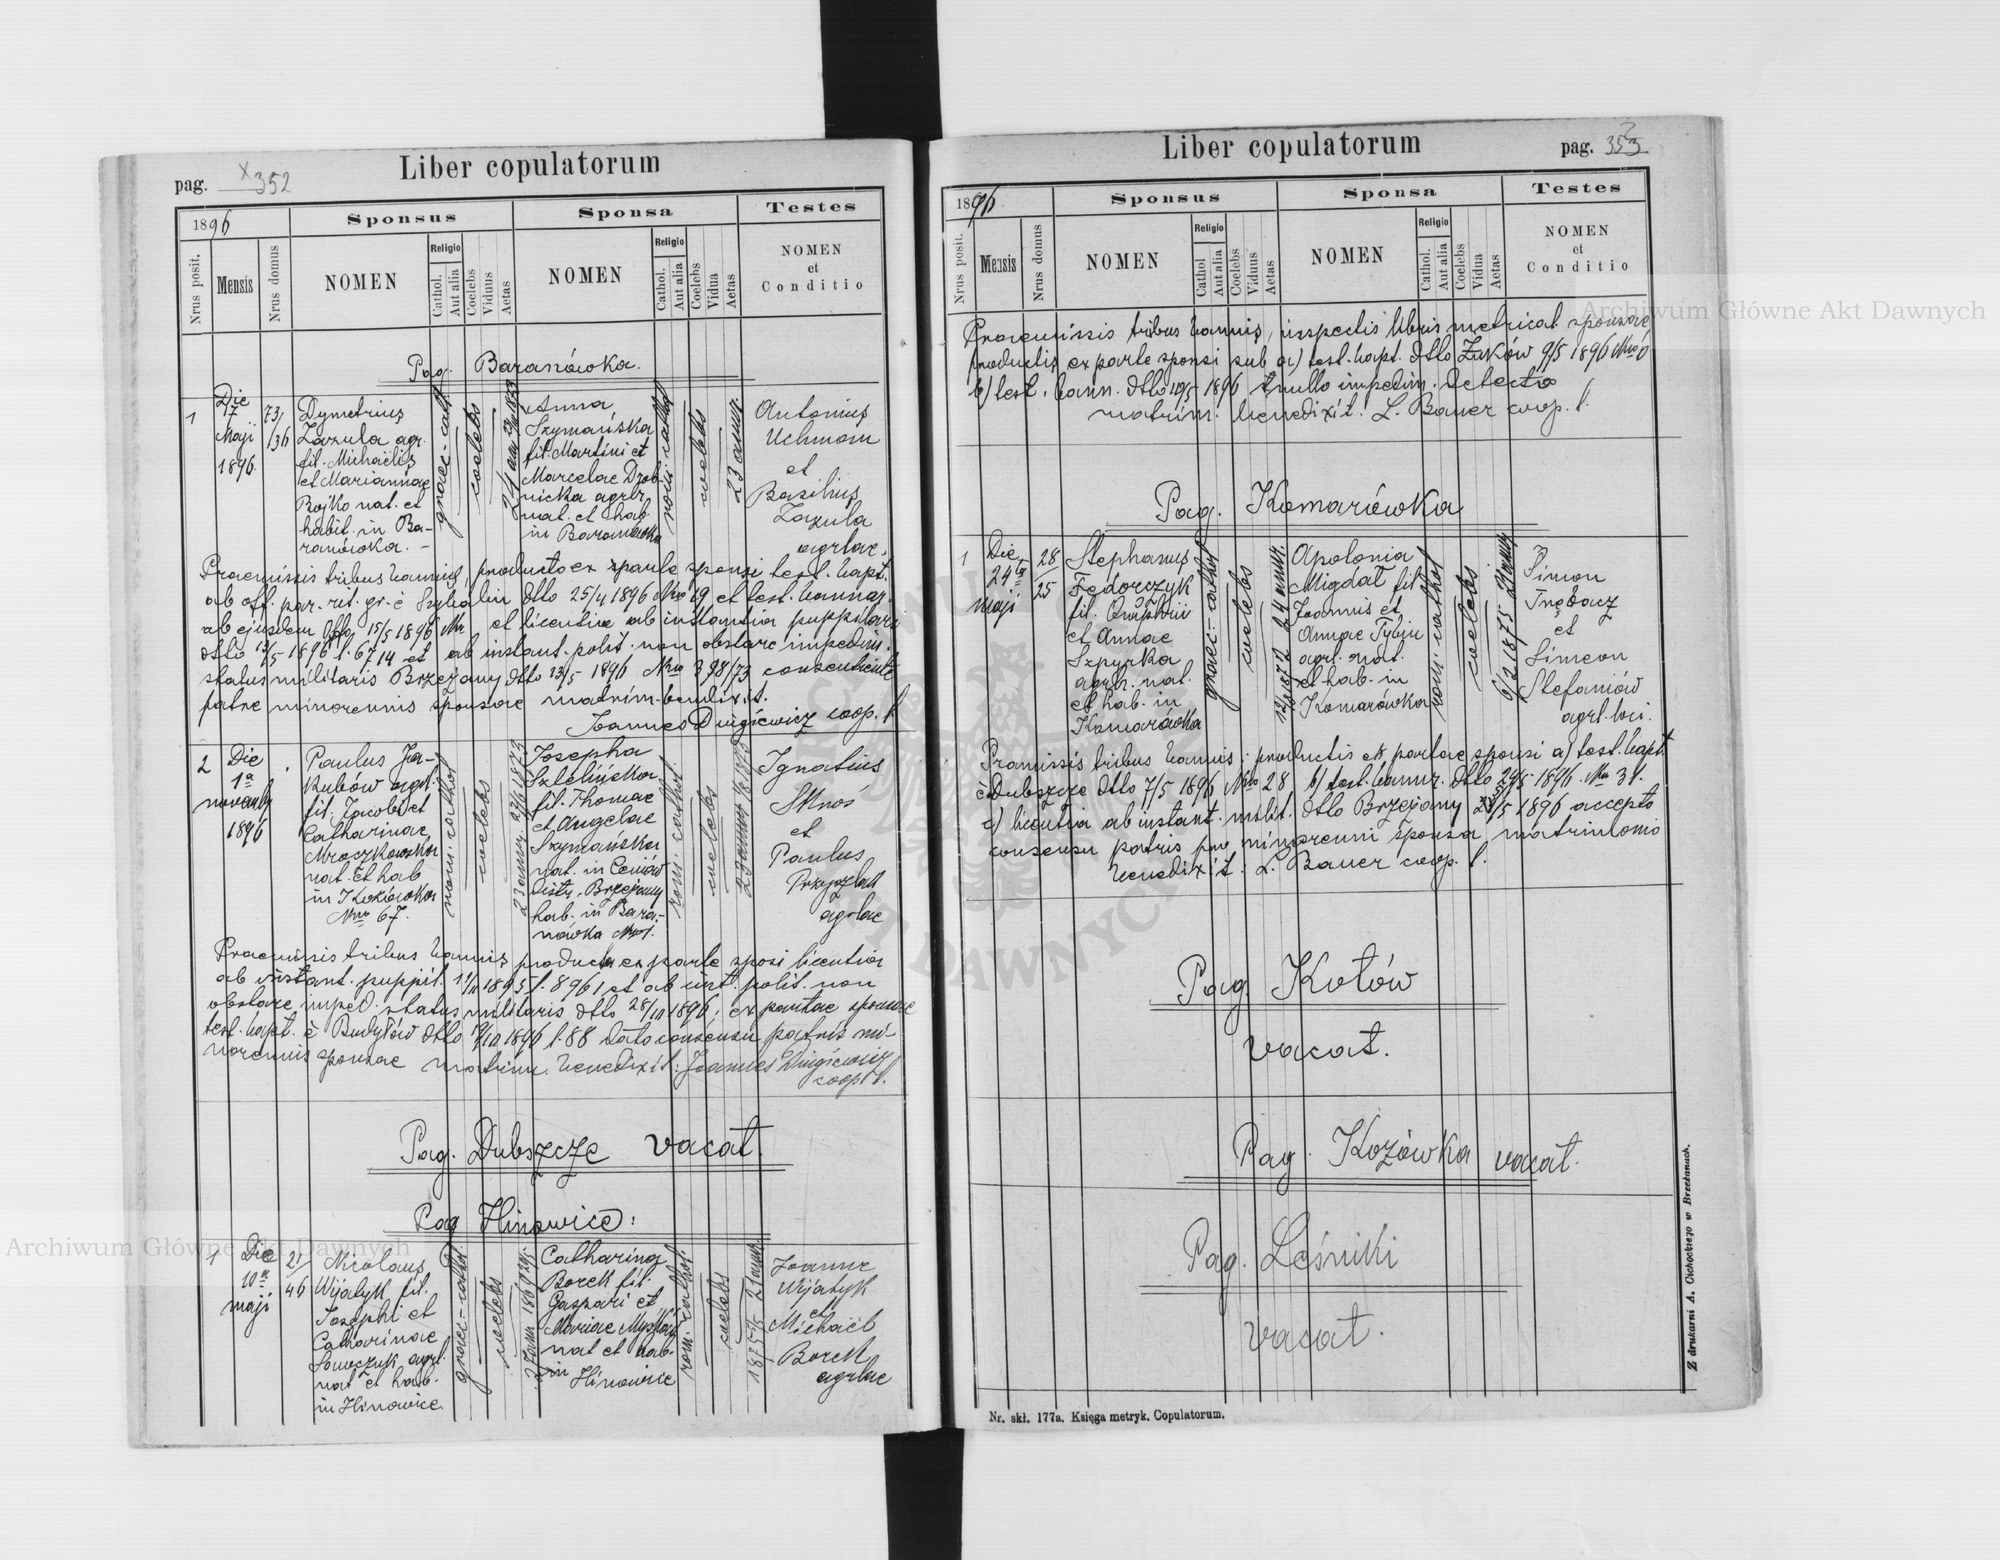 Liber copulatorum
pag. 352
1896
Sponsus
Sponsa
Testes
Nrus posit.
Mensis
Nrus domus
NOMEN
Religio
Cathol.
Aut alia
Coelebs
Viduus
Aetas
NOMEN
Religio
Cathol.
Aut alia
Coelebs
Vidua
Aetas
NOMEN
et
Conditio
Pag. Baranówka.
1
Die
17
Maji
1896.
73/
136
Dymetrius
Zazula agr.
fil. Michaëlis
et Mariannae
Bojko nat. et
habit. in Ba-
ranówka.
graec-cath.
coelebs
Anna
Szymańska
fil. Martini et
Marcelae
agr.
nat. et hab.
in Baranówka
rom. cathol
coelebs
23 annor.
Antonius
Uchman
et
Basilius
Zazula
agrlae.
Praemissis tribus bannis, producto ex parte sponsi test. bapt.
ab off. par. rit. gr. è dtto 25/4 1896 Nro 19 et test. bannor.
ab ejusdem dtto 15/5 1896 et licentia ab instantia puppilari
dtto 1896 l. 6714 et ab instant. polit. non obstare impedim.
status militaris Brzeżany dtto 13/5 1896 Nro 398/73 consentiente
patre minorennis sponsae matrim. bendixit.
Joannes coop. l.
2
Die
1a
novemb
1896
Paulus Ja-
kubów agrl.
fil. Jacobi et
Catharinae
Mroczkowska
nat. et hab
in Kozówka
Nro 67.
rom. cathol
coelebs
Josepha
fil. Thomae
et Angelae
Szymańska
nat. in Ceniów
distr. Brzeżany
hab. in Bara-
nówka
rom. cathol.
coelebs
Ignatius
Sknoś
et
Paulus
agrlae
Praemissis tribus bannis, producta ex parte sposi licentia
ab instant. puppil. l. 8961 et ab inst. polit. non
obstare imped. status militaris dtto 28/10 1896; ex partae sponsae
test. bapt. è Budyłów dtto 1896 l. 88 dato consensu patris mi-
norennis sponsae matrim. benedixit: Joannes
coop. l.
Pag. Dubszcze vacat.
Pag Hinowice:
1
Die
10a
maji
21/
46
Nicolaus
Wijatyk fil.
Josephi et
Catharinae
agrl.
nat et hab.
in Hinowice.
graec-cathol
coelebs
Catharina
Borek fil.
Gaspari et
Mariae
nat et hab.
in Hinowice
rom. cathol.
coelebs
Joannes
Wijatyk
et
Michaël
Borek
agrlae
Liber copulatorum
pag. 353
1896
Sponsus
Sponsa
Testes
Nrus posit.
Mensis
Nrus domus
NOMEN
Religio
Cathol
Aut alia
Coelebs
Viduus
Aetas
NOMEN
Religio
Cathol.
Aut alia
Coelebs
Vidua
Aetas
NOMEN
et
Conditio
Praemissis tribus bannis, inspectis libris metrical. sponsae
productis ex parte sponsi sub a) test. bapt. dtto Żuków 9/5 1896
b) test. bann. dtto 10/5 1896 nullo impedim. detecto
matrim. benedixit: L. Bauer coop. l.
Pag. Komarówka
1
Die
24ta
maji
28
25
Stephanus
Fedorczyk
fil. Onuphrii
et Annae
Szpyrka
agrlr. nat.
et hab. in
Komarówka
graec-cathol
coelebs
24 annr.
Apolonia
Migdał fil
Joannis et
Annae
agrl. nat.
et hab. in
Komarówka
rom. cathol
coelebs
6/2 1875 21 annor
Simon
Trębacz
et
Simeon
Stefaniów
agrl. loci.
Pramissis tribus bannis; productis ex partae sponsi a) test. bapt.
è Dubszcze dtto 7/5 1896 Nro 28 b) test. bannor. dtto 24/5 1896. Nro 31.
c) licentia ab instant. milit. dtto Brzeżany 23/5 1896 accepto
consensu patris pro minorenni sponsa matrimonio
benedixit: L. Bauer coop. l.
Pag. Kotów
vacat.
Pag. Kozówka vacat.
Pag. Leśniki
vacat.
Nr. skł. 177a. Księga metryk. Copulatorum.
Z drukarni A. Cichockiego w Brzeżanach.
Archiwum Główne Akt Dawnych
Archiwum Główne Akt Dawnych